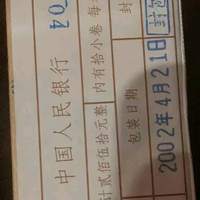 中国人民银行
内有拾小卷 每
计贰佰伍拾元整
包装日期
封
2002年4月21日